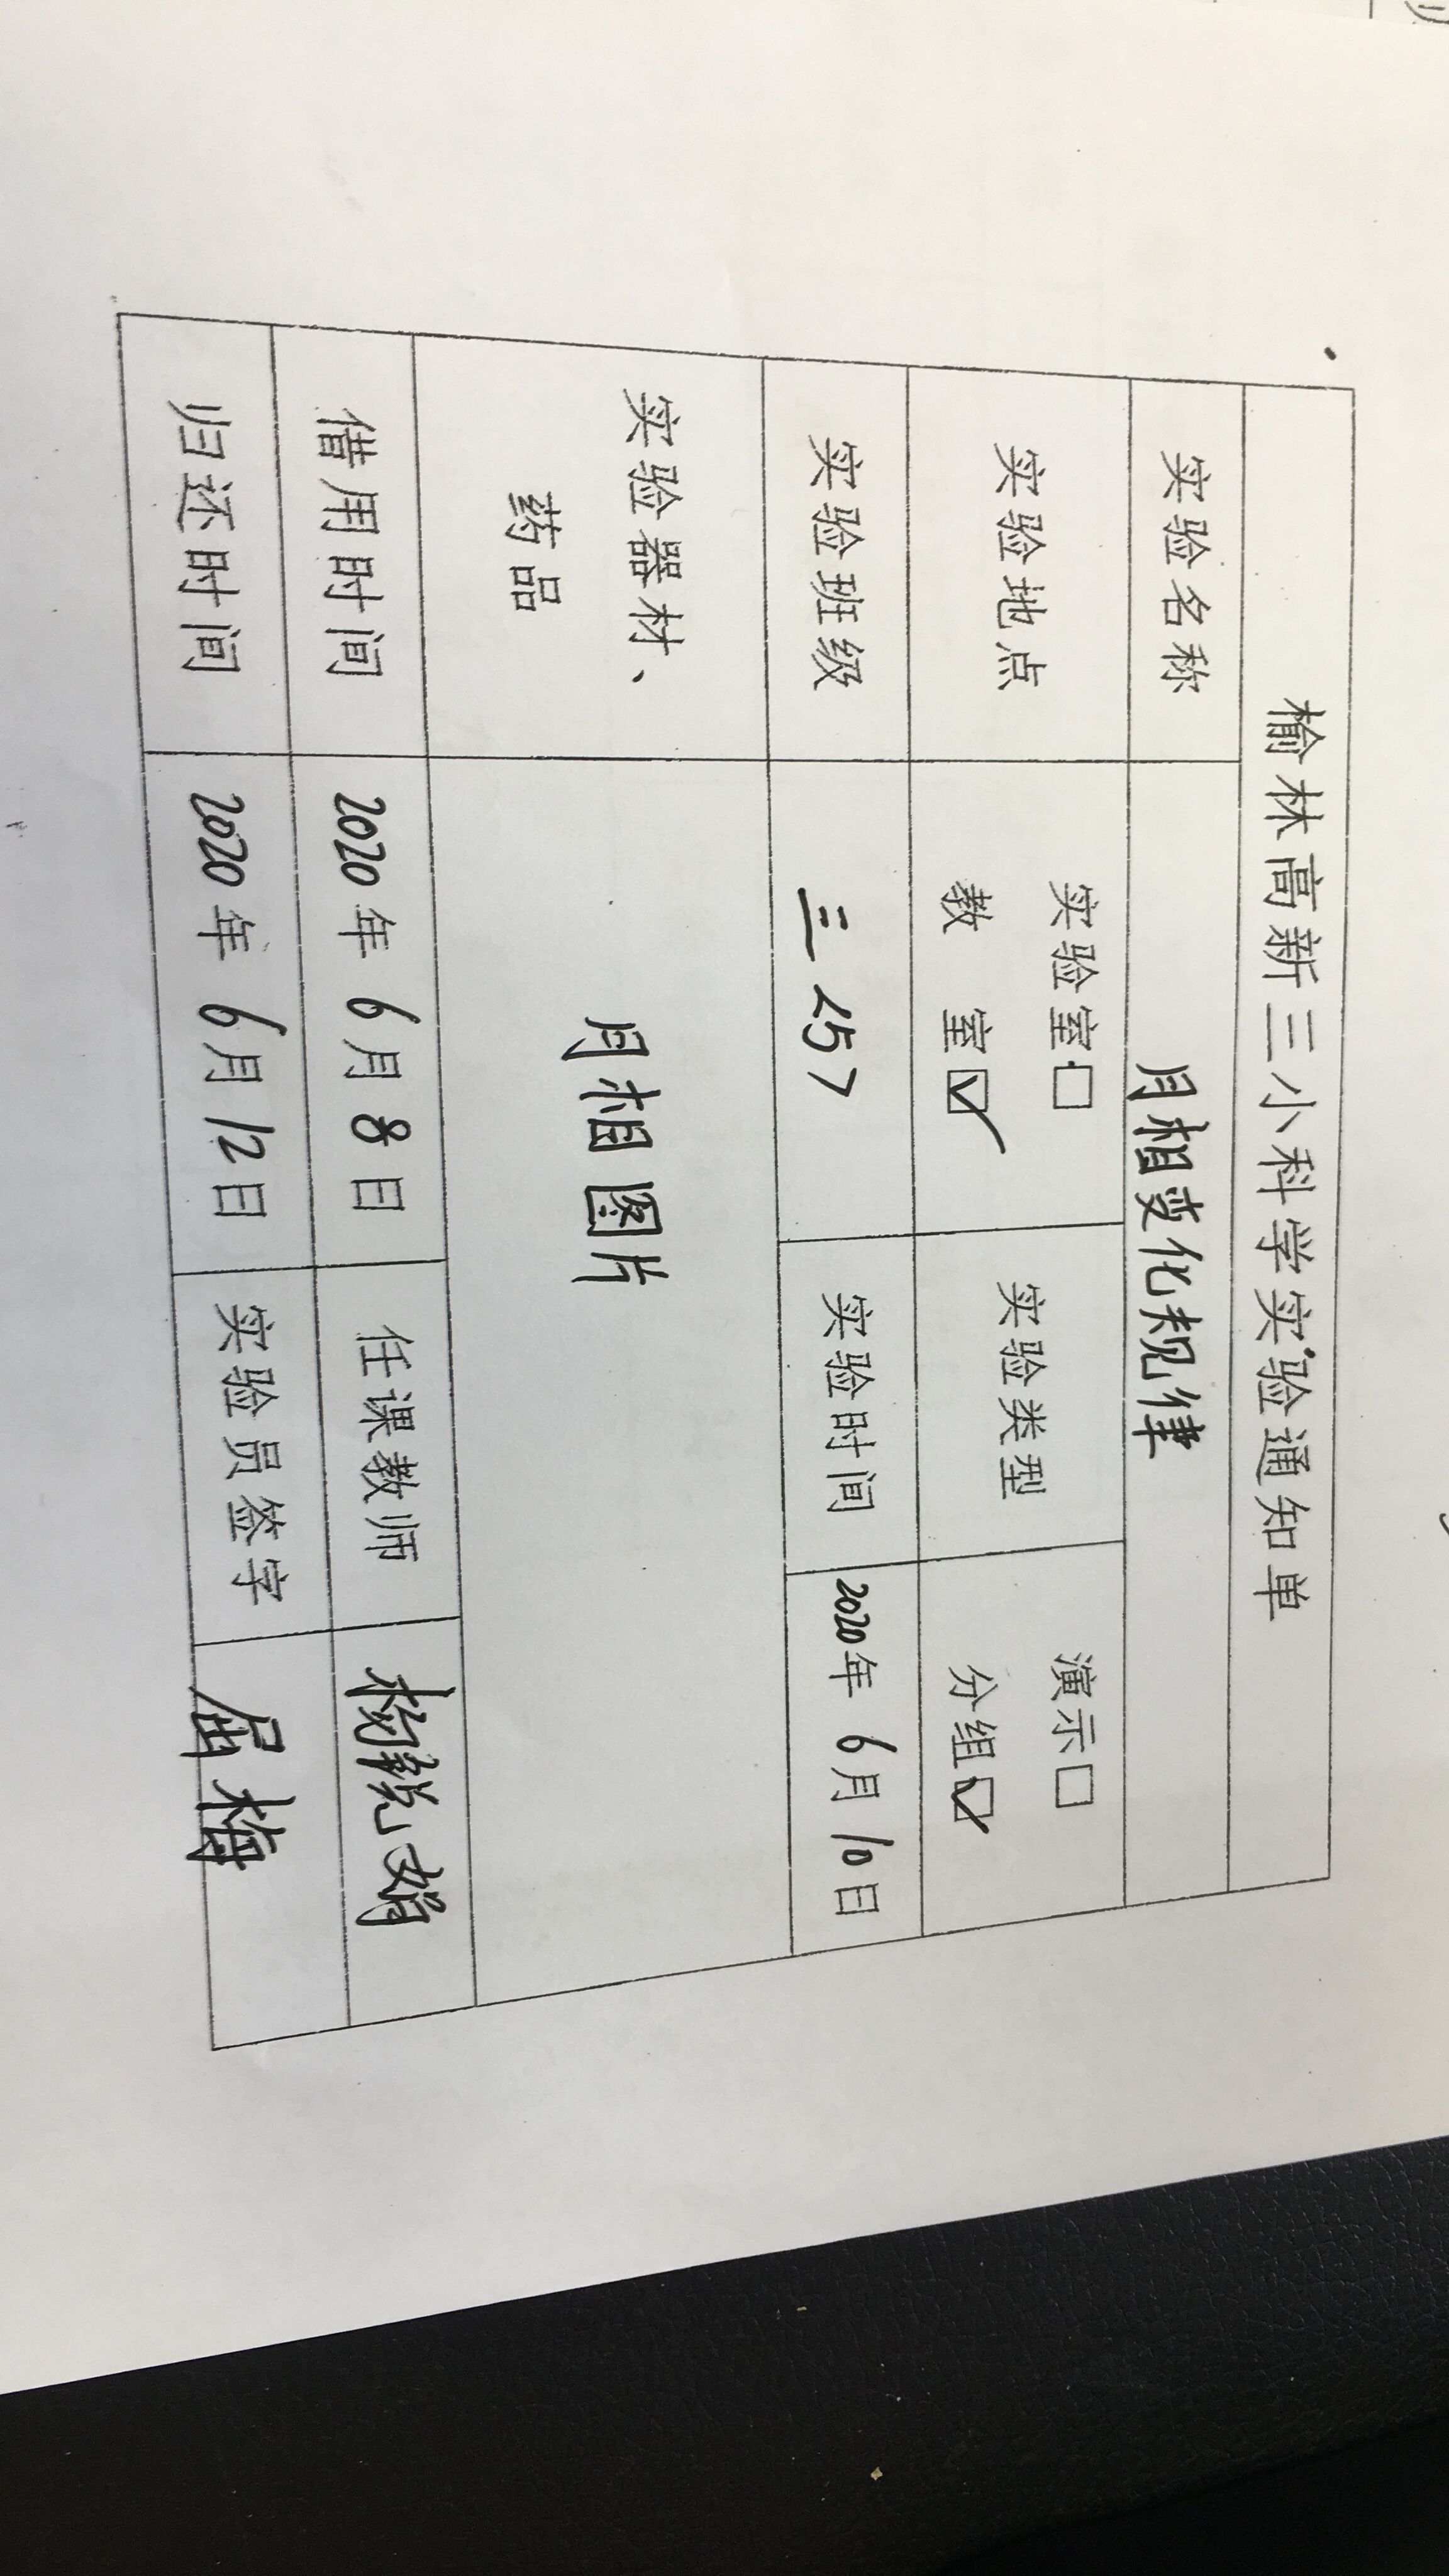 榆林高新三小科学实验通知单
实验名称 月相变化规律
实验地点 实验室□ 教 室☑ 实验类型 演示□ 分组☑
实验班级 三<5> 实验时间 2020年 6月 10日
实验器材、
药品 月相图片
借用时间 2020年 6月 8日 任课教师 杨锐娟
归还时间 2020年 6月 12日 实验员签字 屈梅